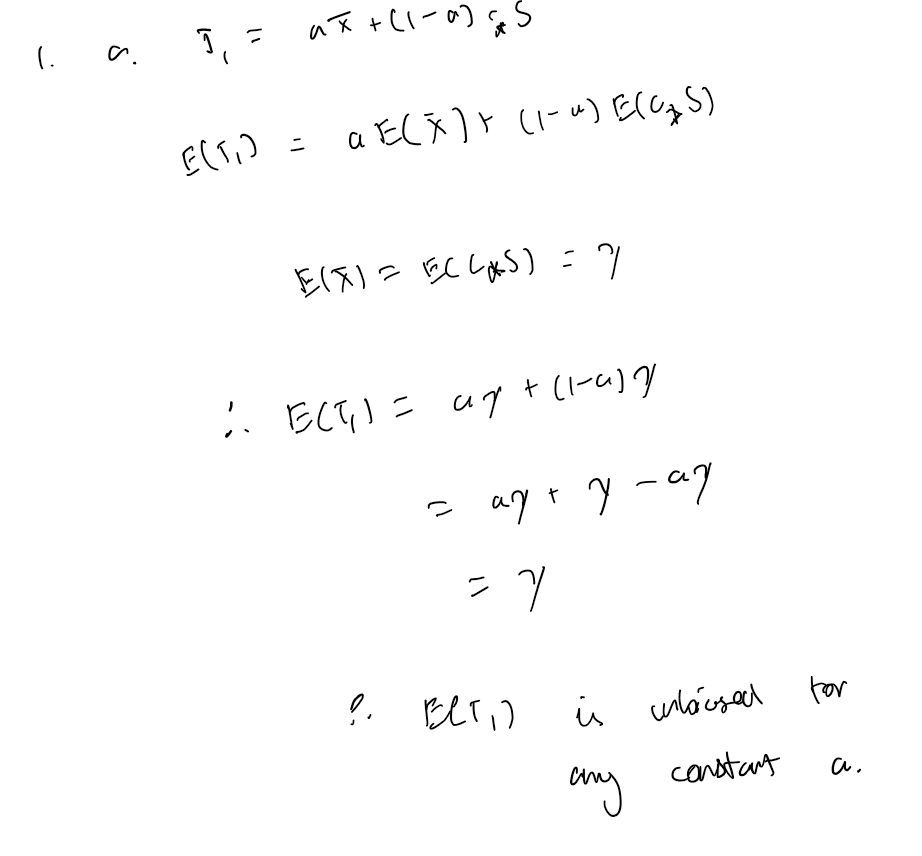 1. a. T₁ = a x̄ + (1-a) c* S
E(T₁) = a E(x̄) + (1-a) E(c* S)
E(x̄) = E(c* S) = γ
∴ E(T₁) = aγ + (1-a)γ
= aγ + γ - aγ
= γ
∴ E(T₁) is unbiased for
any constant a.